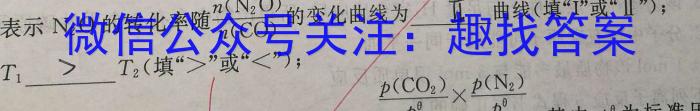 表示 N 的转化率随 n(N₂O)/n(CO) 的变化曲线为 Ⅱ 曲线(填“Ⅰ”或“Ⅱ”);
微信公众号关注：趣找答案
T₁ > T₂(填“>”或“<”);
p(CO₂)/p^θ × p(N₂)/p^θ